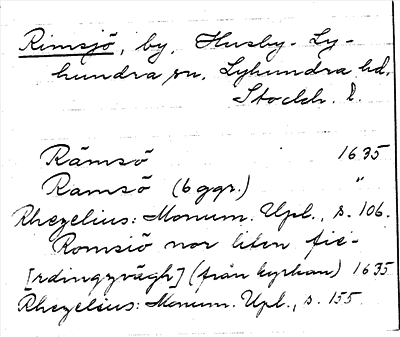 Rimsjö, by, Husby-Ly-
hundra sn, Lyhundra hd,
Stockh. l.
Rämsö 1635
Ramsö (6 ggr.) "
Rhezelius: Monum. Upl., s. 106.
Romsiö nor liten fie-
[rdingzvägh] (från kyrkan) 1635
Rhezelius: Monum. Upl., s. 155.